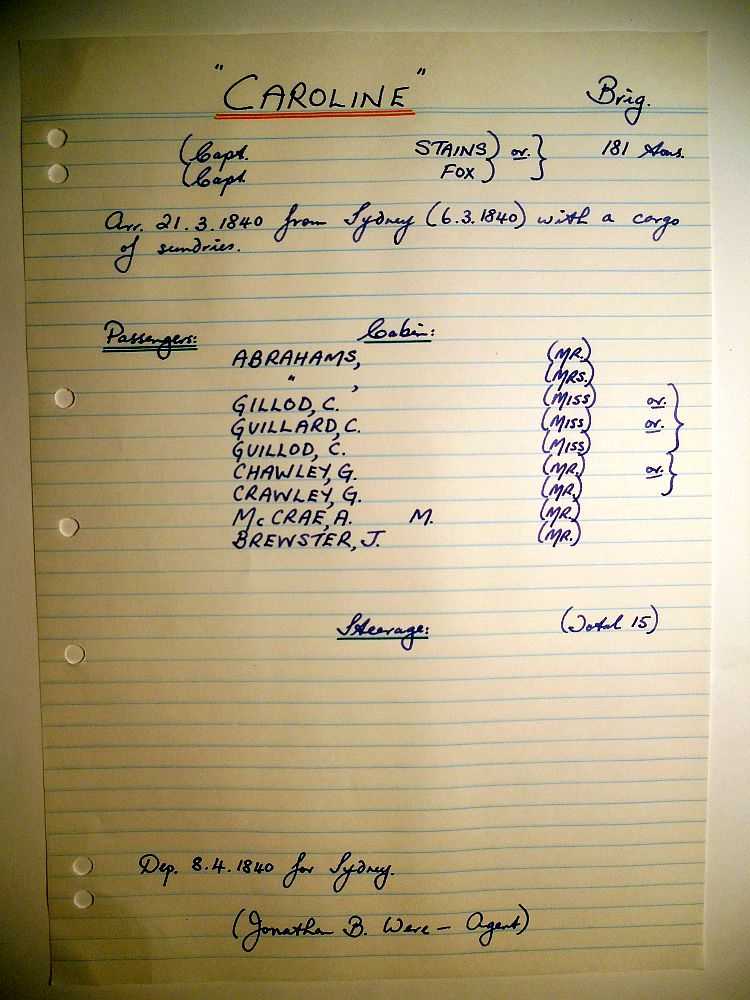 "CAROLINE" Brig.
(Capt. STAINS) or } 181 tons.
(Capt. FOX)
Arr. 21.3.1840 from Sydney (6.3.1840) with a cargo
of sundries.
Passengers: Cabin:
ABRAHAMS, (MR.)
" , (MRS.)
GILLOD, C. (MISS) or.
GUILLARD, C. (MISS) or.
GUILLOD, C. (MISS)
CHAWLEY, G. (MR.) or.
CRAWLEY, G. (MR.)
McCRAE, A. M. (MR.)
BREWSTER, J. (MR.)
Steerage: (Total 15)
Dep. 8.4.1840 for Sydney.
(Jonathan B. Were - Agent)